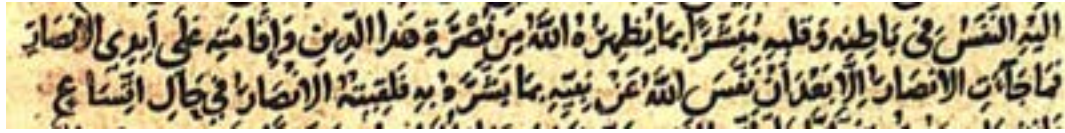 اليه النَفَسَ فى باطنه وقلبه مُبَشَّرًا بما يُظهِرُهُ اللَّهُ مِن نُصْرَةِ هَذا الدِّينِ وَإقَامَتِهِ عَلَى أَيدِى الأنصَارِ
فما جَآءَتِ الانصَارُ إلَّا بَعْدَ أنْ نَفَّسَ اللَّهُ عَنْ نَبِيِّهِ بمَا بَشَّرَهُ بهِ فَلَقِيَتْهُ الانْصَارُ فِي حَالِ اتِّسَاعٍ